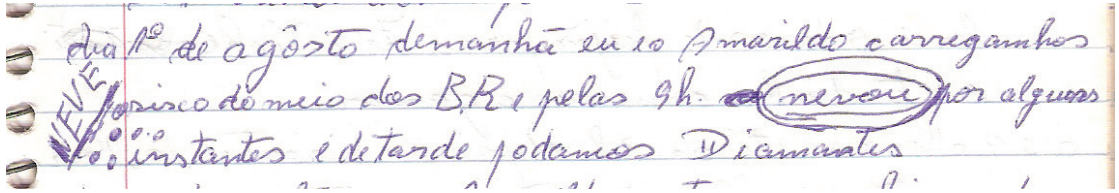 dia 1º de agôsto demanhã eu eo Amarildo carregamhos
NEVE
osisco do meio dos BR e pelas 9h. nevou por alguns
instantes e detarde podamos Diamantes